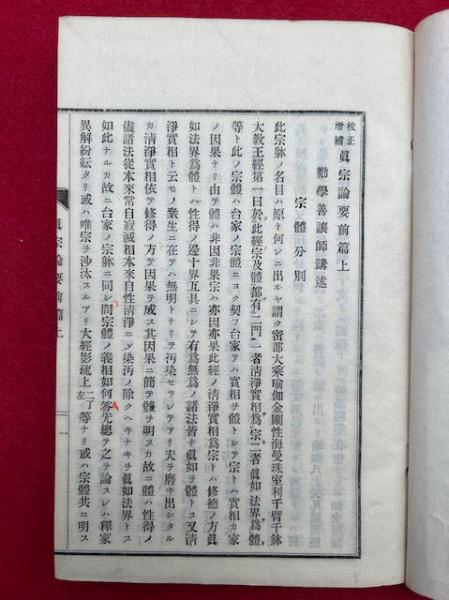 校正増補 眞宗論要前篇上
勸學善讓師講述
宗體分別
此宗體ノ名目ハ原ト何レニ出ルヤ謂ク密部大乘瑜伽金剛性海曼殊室利千臂千鉢
大敎王經第一曰於此經宗及體都有二門一者淸淨實相爲宗二者眞如法界爲體
等ト此ノ宗體ハ台家ノ宗體ニヨク契フ台家テハ實相ヲ體トシテ宗トハ實相カ家
ノ因果ナリ由テ體ハ非因非果宗ハ亦因亦果此經ノ淸淨實相ヲ宗トハ修德ノ方眞
如法界爲體トハ性得ノ邊十界互具ニシテ有爲無爲ノ諸法皆チ眞如ヲ體トス又淸
淨實相ト云モノ衆生ニ在テハ無明トキリテ汚染セラレテアリ夫ヲ磨キ出シタル
カ淸淨實相依テ修得ノ方テ因果ヲ成ス其因果ニ簡テ體ヲ明スカ故ニ體ハ性得ノ
儘諸法從本來常自寂滅相本來自性淸淨ニソ染汚ノ除クヘキナキヲ眞如法界トス
如此ナルカ故ニ台家ノ宗體ニ同シ問宗體ノ義相如何答先總テ之ヲ論スレハ釋家
異解紛紜タリ或ハ唯宗ヲ沙汰スルアリ大經影疏上二丁左等ナリ或ハ宗體共ニ明ス
眞宗論要前篇上
一